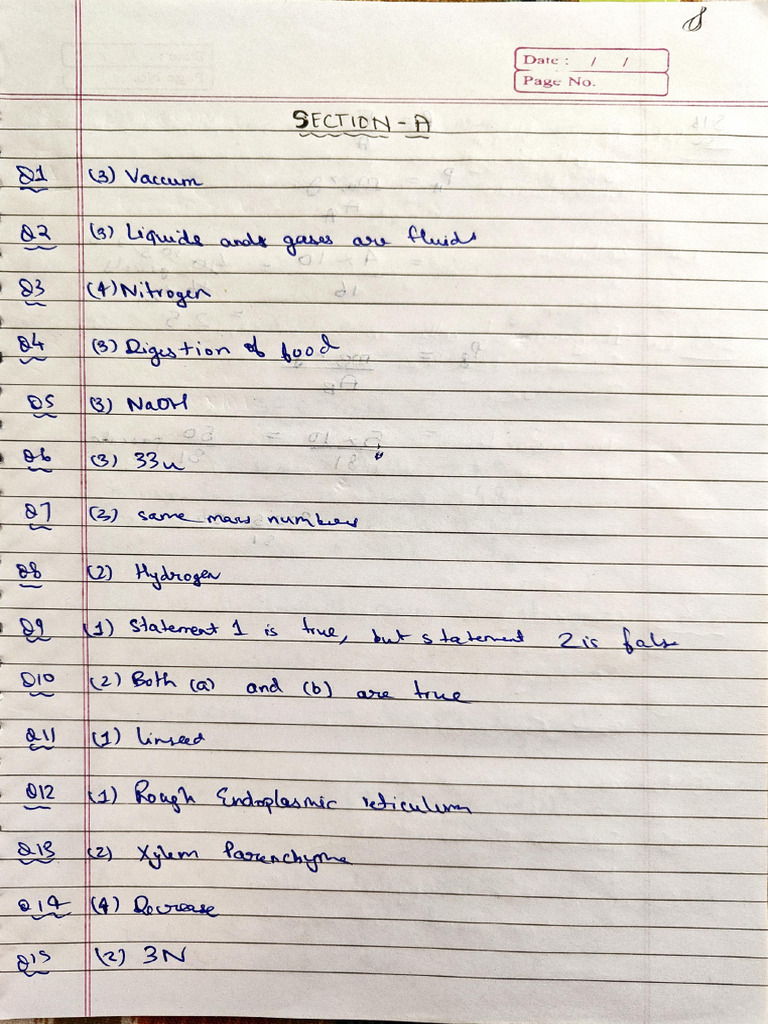 8
Date : / /
Page No.
SECTION - A
Q1 (3) Vaccum
Q2 (3) Liquids and gases are fluids
Q3 (4) Nitrogen
Q4 (3) Digestion of food
Q5 (3) NaOH
Q6 (3) 33u
Q7 (3) same mass numbers
Q8 (2) Hydrogen
Q9 (1) Statement 1 is true, but statement 2 is false
Q10 (2) Both (a) and (b) are true
Q11 (1) linseed
Q12 (1) Rough Endoplasmic reticulum
Q13 (2) Xylem Parenchyma
Q14 (4) Decrease
Q15 (2) 3N